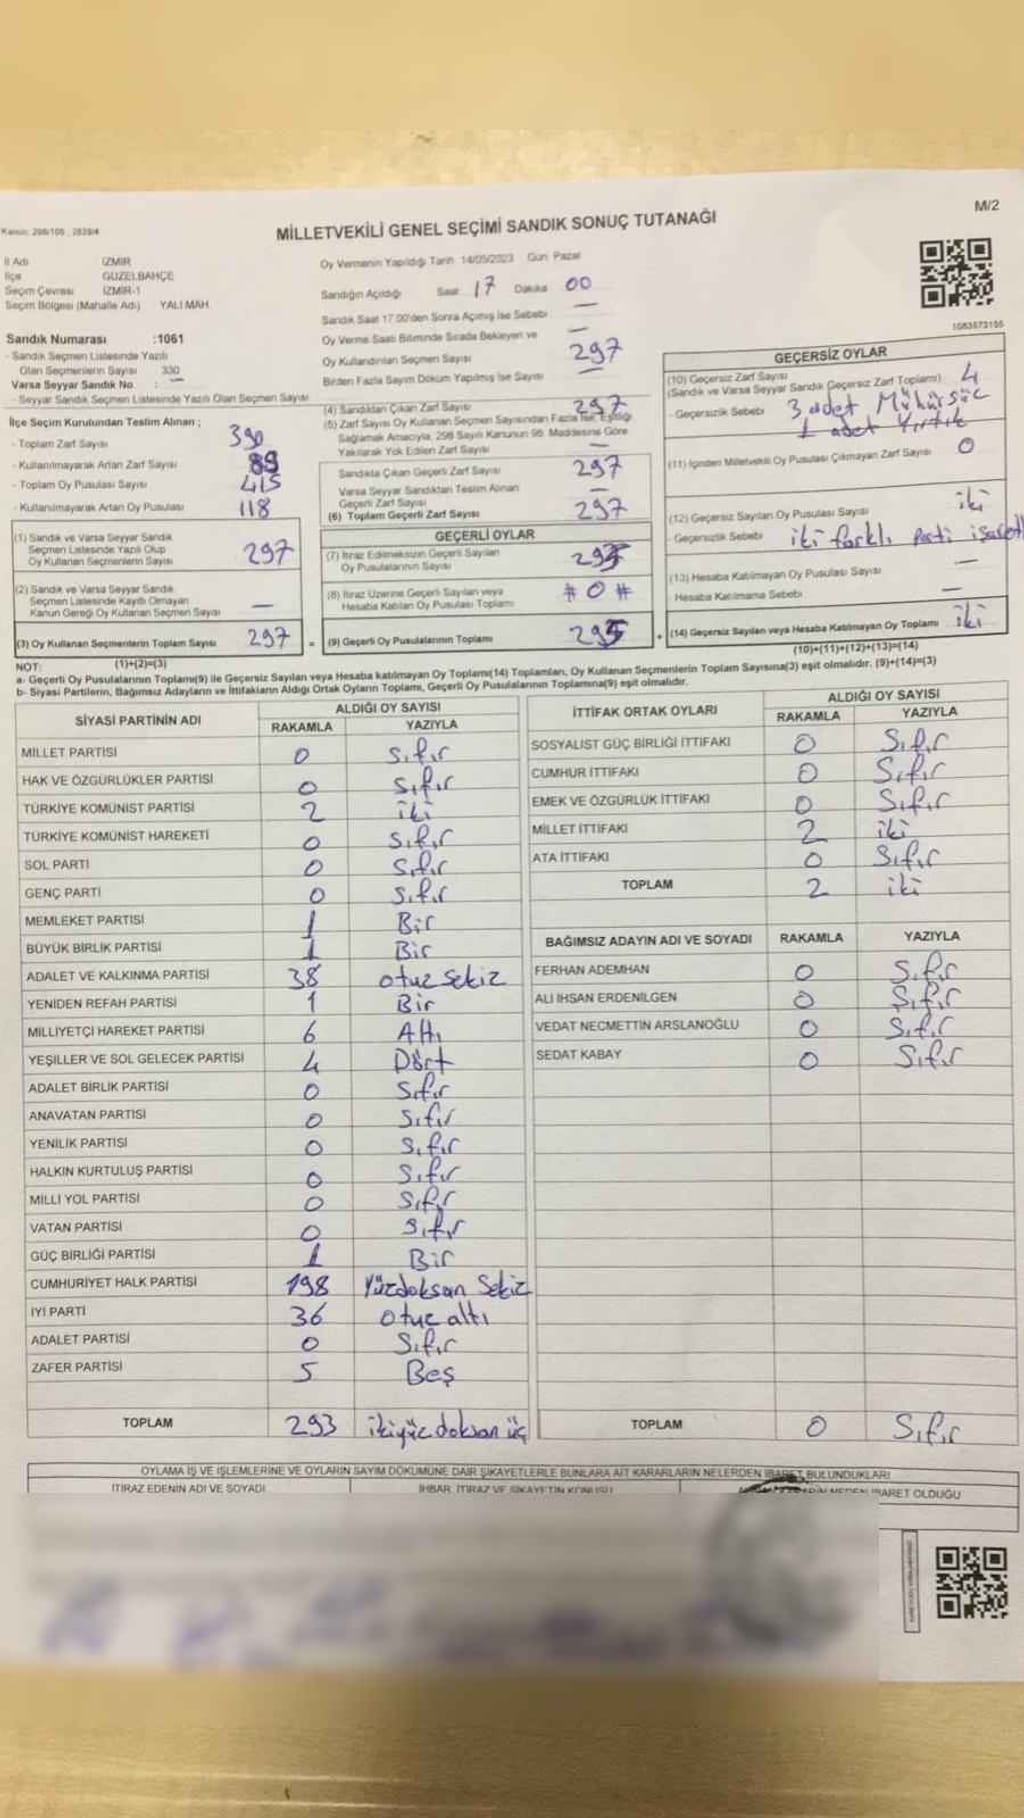 M/2
Kanun: 298/105
MİLLETVEKİLİ GENEL SEÇİMİ SANDIK SONUÇ TUTANAĞI
İl Adı İZMİR
İlçe GÜZELBAHÇE
Seçim Çevresi İZMİR-1
Seçim Bölgesi (Mahalle Adı) YALI MAH
Sandık Numarası :1061
- Sandık Seçmen Listesinde Yazılı
Olan Seçmenlerin Sayısı 330
Varsa Seyyar Sandık No :
- Seyyar Sandık Seçmen Listesinde Yazılı Olan Seçmen Sayısı
Oy Vermenin Yapıldığı Tarih 14/05/2023 Gün Pazar
Sandığın Açıldığı Saat 17 Dakika 00
Sandık Saat 17.00'den Sonra Açılmış İse Sebebi —
Oy Verme Saati Bitiminde Sırada Bekleyen ve —
Oy Kullandırılan Seçmen Sayısı 297
Birden Fazla Sayım Döküm Yapılmış İse Sayısı —
1083673155
İlçe Seçim Kurulundan Teslim Alınan ;
- Toplam Zarf Sayısı 390
- Kullanılmayarak Artan Zarf Sayısı 89
- Toplam Oy Pusulası Sayısı 415
- Kullanılmayarak Artan Oy Pusulası 118
(1) Sandık ve Varsa Seyyar Sandık
Seçmen Listesinde Yazılı Olup
Oy Kullanan Seçmenlerin Sayısı 297
(2) Sandık ve Varsa Seyyar Sandık
Seçmen Listesinde Kayıtlı Olmayan
Kanun Gereği Oy Kullanan Seçmen Sayısı —
(3) Oy Kullanan Seçmenlerin Toplam Sayısı 297
(1)+(2)=(3)
(4) Sandıktan Çıkan Zarf Sayısı 297
(5) Zarf Sayısı Oy Kullanan Seçmen Sayısından Fazla İse, Eşitliği
Sağlamak Amacıyla, 298 Sayılı Kanunun 98. Maddesine Göre
Yakılarak Yok Edilen Zarf Sayısı —
Sandıkta Çıkan Geçerli Zarf Sayısı 297
Varsa Seyyar Sandıktan Teslim Alınan
Geçerli Zarf Sayısı —
(6) Toplam Geçerli Zarf Sayısı 297
GEÇERLİ OYLAR
(7) İtiraz Edilmeksizin Geçerli Sayılan
Oy Pusulalarının Sayısı 295
(8) İtiraz Üzerine Geçerli Sayılan veya
Hesaba Katılan Oy Pusulası Toplamı # 0 #
= (9) Geçerli Oy Pusulalarının Toplamı 295
GEÇERSİZ OYLAR
(10) Geçersiz Zarf Sayısı
(Sandık ve Varsa Seyyar Sandık Geçersiz Zarf Toplamı) 4
- Geçersizlik Sebebi 3 adet Mühürsüz
1 adet Yırtık
(11) İçinden Milletvekili Oy Pusulası Çıkmayan Zarf Sayısı 0
(12) Geçersiz Sayılan Oy Pusulası Sayısı iki
- Geçersizlik Sebebi iki farklı Parti işareti
(13) Hesaba Katılmayan Oy Pusulası Sayısı —
- Hesaba Katılmama Sebebi —
+ (14) Geçersiz Sayılan veya Hesaba Katılmayan Oy Toplamı iki
(10)+(11)+(12)+(13)=(14)
NOT:
a- Geçerli Oy Pusulalarının Toplamı(9) ile Geçersiz Sayılan veya Hesaba katılmayan Oy Toplamı(14) Toplamları, Oy Kullanan Seçmenlerin Toplam Sayısına(3) eşit olmalıdır. (9)+(14)=(3)
b- Siyasi Partilerin, Bağımsız Adayların ve İttifakların Aldığı Ortak Oyların Toplamı, Geçerli Oy Pusulalarının Toplamına(9) eşit olmalıdır.
SİYASİ PARTİNİN ADI ALDIĞI OY SAYISI
RAKAMLA YAZIYLA
MİLLET PARTİSİ 0 Sıfır
HAK VE ÖZGÜRLÜKLER PARTİSİ 0 Sıfır
TÜRKİYE KOMÜNİST PARTİSİ 2 iki
TÜRKİYE KOMÜNİST HAREKETİ 0 Sıfır
SOL PARTİ 0 Sıfır
GENÇ PARTİ 0 Sıfır
MEMLEKET PARTİSİ 1 Bir
BÜYÜK BİRLİK PARTİSİ 1 Bir
ADALET VE KALKINMA PARTİSİ 38 otuz sekiz
YENİDEN REFAH PARTİSİ 1 Bir
MİLLİYETÇİ HAREKET PARTİSİ 6 Altı
YEŞİLLER VE SOL GELECEK PARTİSİ 4 Dört
ADALET BİRLİK PARTİSİ 0 Sıfır
ANAVATAN PARTİSİ 0 Sıfır
YENİLİK PARTİSİ 0 Sıfır
HALKIN KURTULUŞ PARTİSİ 0 Sıfır
MİLLİ YOL PARTİSİ 0 Sıfır
VATAN PARTİSİ 0 Sıfır
GÜÇ BİRLİĞİ PARTİSİ 1 Bir
CUMHURİYET HALK PARTİSİ 198 Yüzdoksan Sekiz
İYİ PARTİ 36 otuz altı
ADALET PARTİSİ 0 Sıfır
ZAFER PARTİSİ 5 Beş
TOPLAM 293 ikiyüz doksan üç
İTTİFAK ORTAK OYLARI ALDIĞI OY SAYISI
RAKAMLA YAZIYLA
SOSYALİST GÜÇ BİRLİĞİ İTTİFAKI 0 Sıfır
CUMHUR İTTİFAKI 0 Sıfır
EMEK VE ÖZGÜRLÜK İTTİFAKI 0 Sıfır
MİLLET İTTİFAKI 2 iki
ATA İTTİFAKI 0 Sıfır
TOPLAM 2 iki
BAĞIMSIZ ADAYIN ADI VE SOYADI RAKAMLA YAZIYLA
FERHAN ADEMHAN 0 Sıfır
ALİ İHSAN ERDENİLGEN 0 Sıfır
VEDAT NECMETTİN ARSLANOĞLU 0 Sıfır
SEDAT KABAY 0 Sıfır
TOPLAM 0 Sıfır
OYLAMA İŞ VE İŞLEMLERİNE VE OYLARIN SAYIM DÖKÜMÜNE DAİR ŞİKAYETLERLE BUNLARA AİT KARARLARIN NELERDEN İBARET BULUNDUKLARI
İTİRAZ EDENİN ADI VE SOYADI İHBAR, İTİRAZ VE ŞİKAYETİN KONUSU NEDEN İBARET OLDUĞU